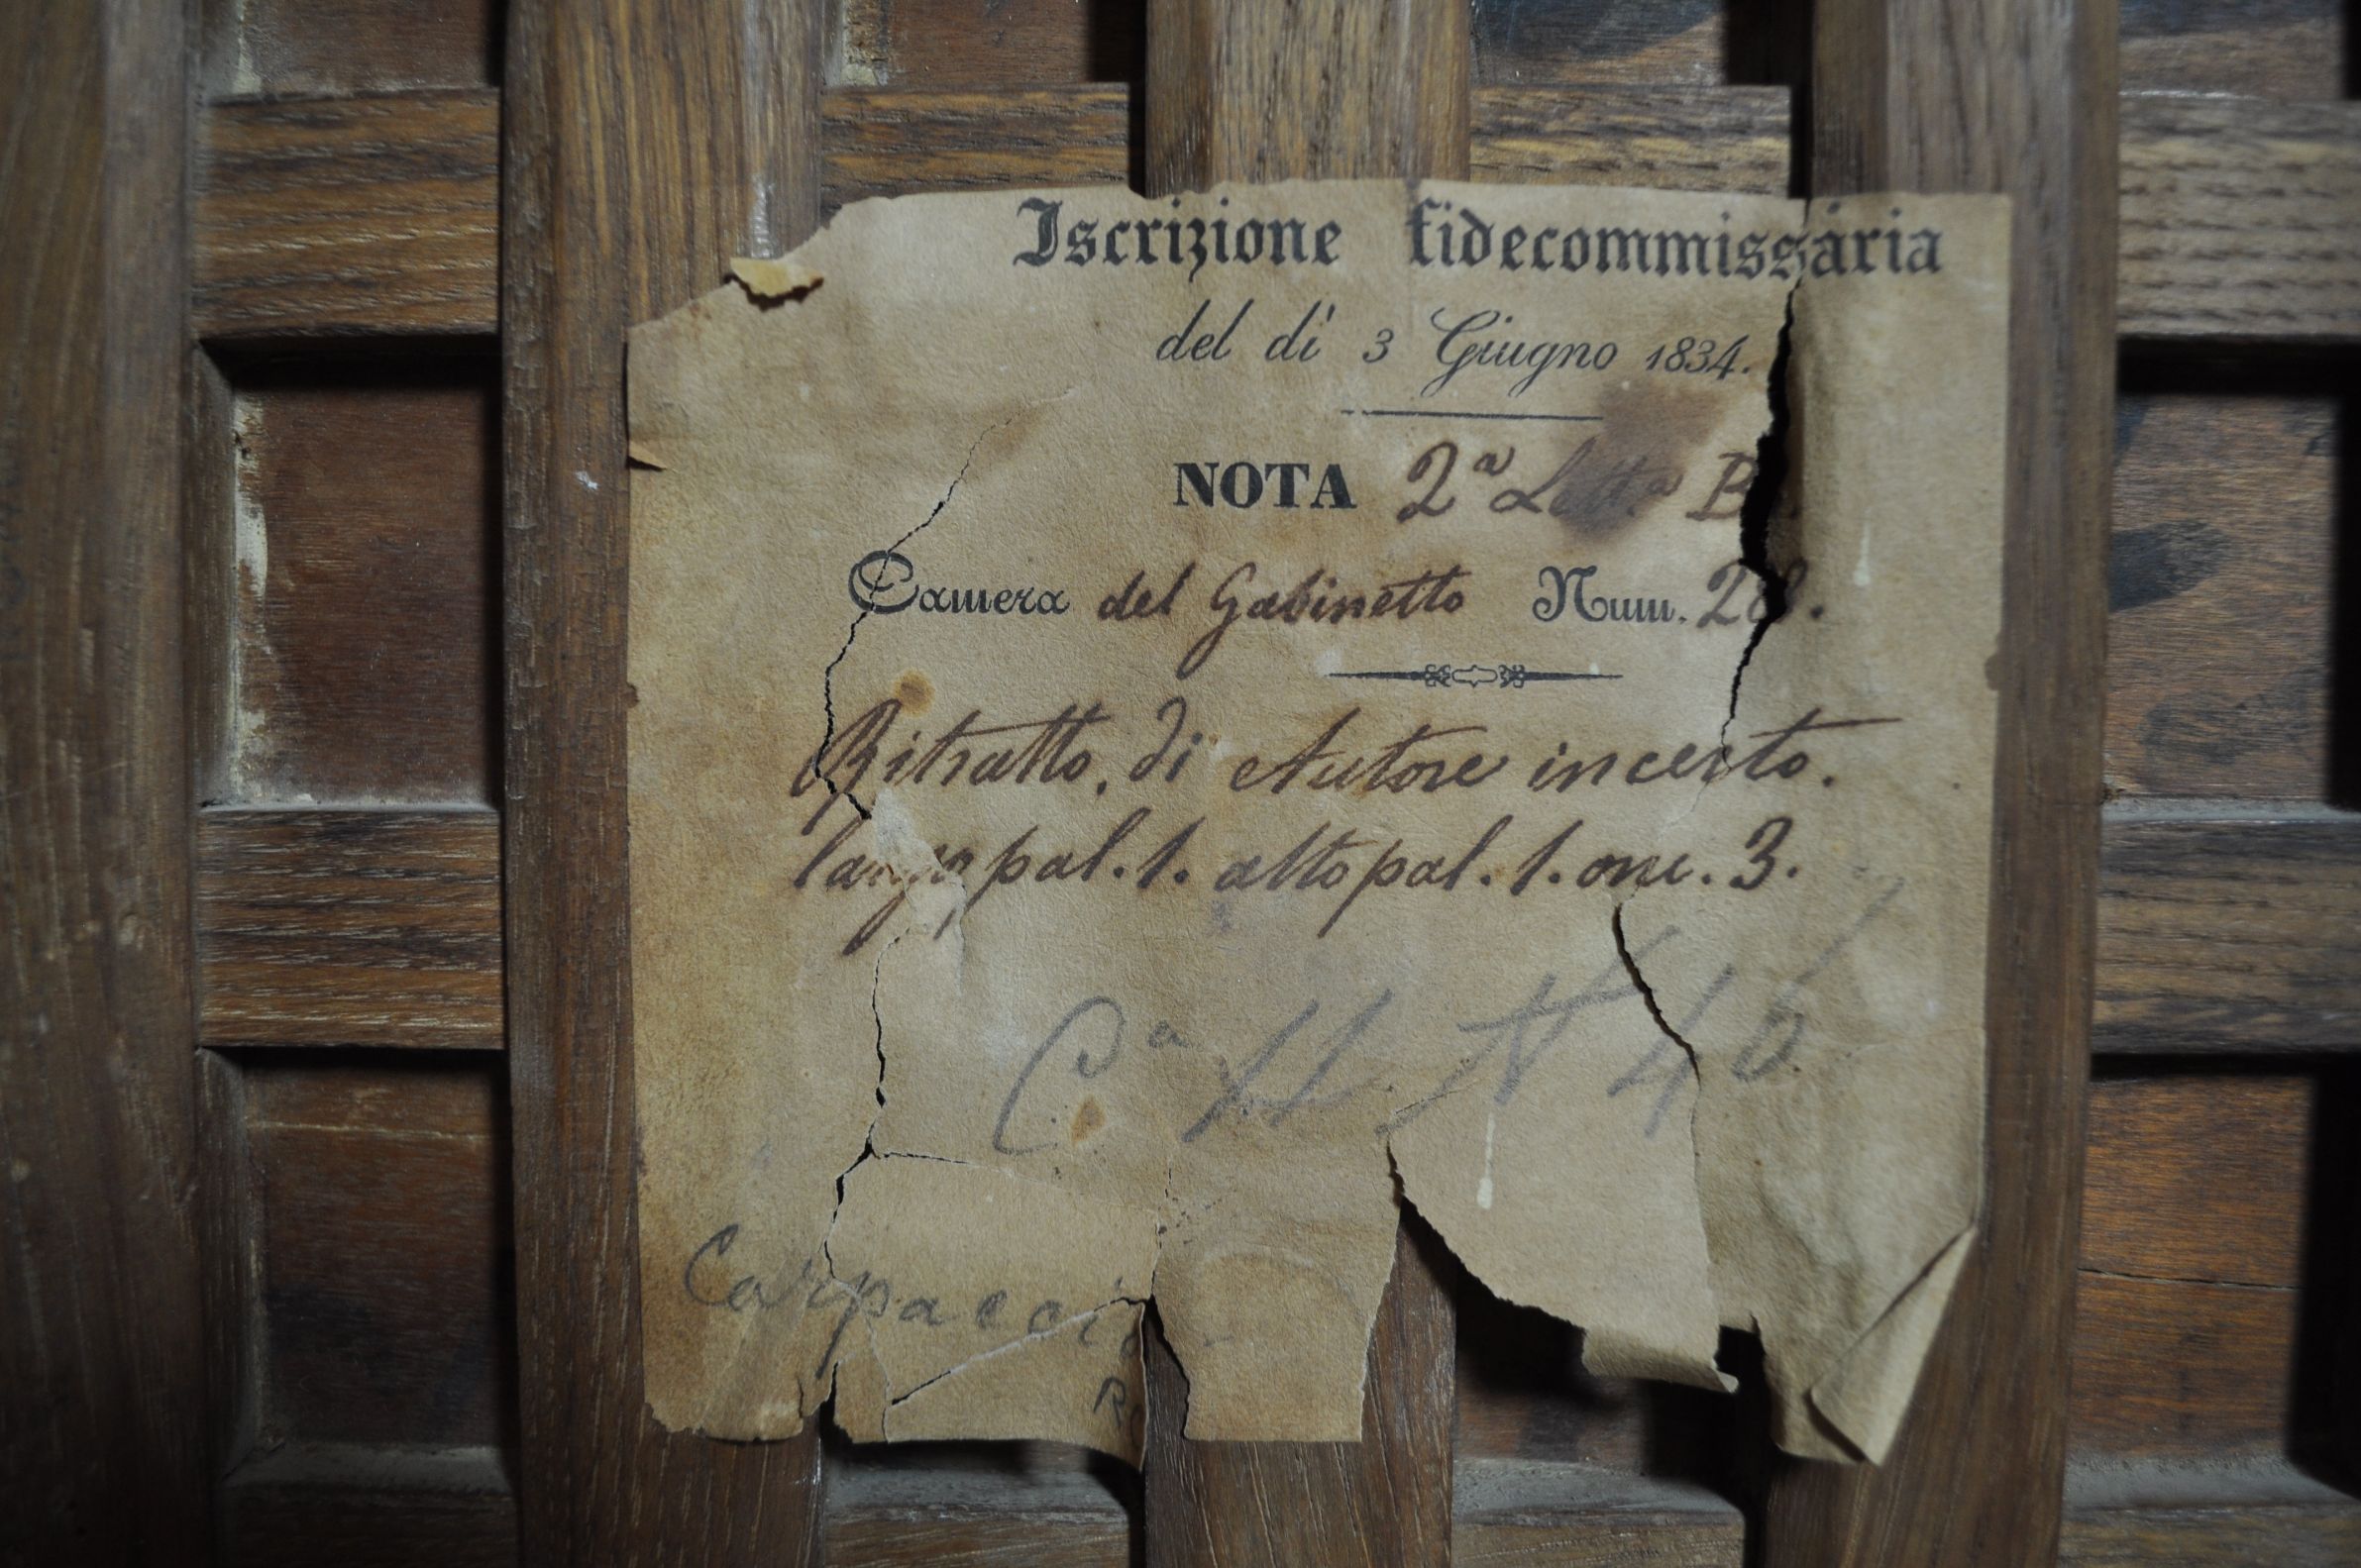 Iscrizione fidecommissaria
del dì 3 Giugno 1834.
NOTA 2ª Lett.ª B.
Camera del Gabinetto Num. 28.
Ritratto, di Autore incerto.
largo pal. 1. alto pal. 1. onc. 3.
Cª II N
Carpaccio